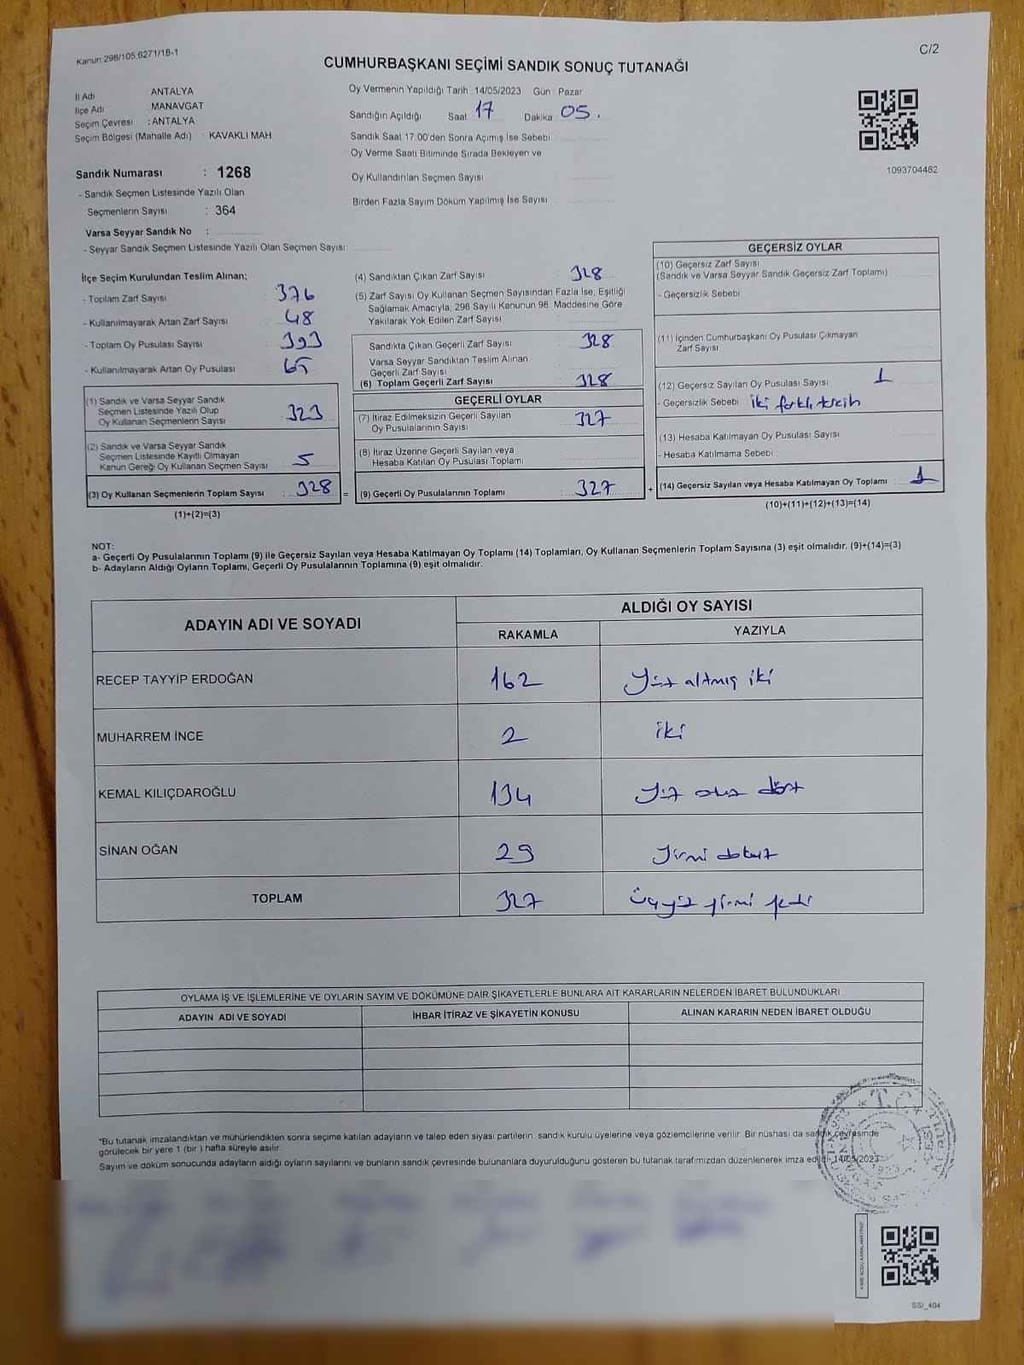 Kanun 298/105,6271/18-1
C/2
CUMHURBAŞKANI SEÇİMİ SANDIK SONUÇ TUTANAĞI
İl Adı ANTALYA
İlçe Adı MANAVGAT
Seçim Çevresi : ANTALYA
Seçim Bölgesi (Mahalle Adı) : KAVAKLI MAH
Sandık Numarası : 1268
- Sandık Seçmen Listesinde Yazılı Olan
Seçmenlerin Sayısı : 364
Varsa Seyyar Sandık No :
- Seyyar Sandık Seçmen Listesinde Yazılı Olan Seçmen Sayısı:
Oy Vermenin Yapıldığı Tarih 14/05/2023 Gün : Pazar
Sandığın Açıldığı Saat 17 Dakika 05.
Sandık Saat 17.00'den Sonra Açımış İse Sebebi
Oy Verme Saati Bitiminde Sırada Bekleyen ve
Oy Kullandırılan Seçmen Sayısı
Birden Fazla Sayım Döküm Yapılmış İse Sayısı
1093704482
İlçe Seçim Kurulundan Teslim Alınan:
- Toplam Zarf Sayısı : 376
- Kullanılmayarak Artan Zarf Sayısı : 48
- Toplam Oy Pusulası Sayısı : 393
- Kullanılmayarak Artan Oy Pusulası : 65
(1) Sandık ve Varsa Seyyar Sandık
Seçmen Listesinde Yazılı Olup
Oy Kullanan Seçmenlerin Sayısı : 323
(2) Sandık ve Varsa Seyyar Sandık
Seçmen Listesinde Kayıtlı Olmayan
Kanun Gereği Oy Kullanan Seçmen Sayısı : 5
(3) Oy Kullanan Seçmenlerin Toplam Sayısı : 328 =
(1)+(2)=(3)
(4) Sandıktan Çıkan Zarf Sayısı : 328
(5) Zarf Sayısı Oy Kullanan Seçmen Sayısından Fazla İse, Eşitliği
Sağlamak Amacıyla, 298 Sayılı Kanunun 98. Maddesine Göre
Yakılarak Yok Edilen Zarf Sayısı
Sandıkta Çıkan Geçerli Zarf Sayısı : 328
Varsa Seyyar Sandıktan Teslim Alınan
Geçerli Zarf Sayısı
(6) Toplam Geçerli Zarf Sayısı : 328
GEÇERLİ OYLAR
(7) İtiraz Edilmeksizin Geçerli Sayılan
Oy Pusulalarının Sayısı : 327
(8) İtiraz Üzerine Geçerli Sayılan veya
Hesaba Katılan Oy Pusulası Toplamı
(9) Geçerli Oy Pusulalarının Toplamı : 327 +
GEÇERSİZ OYLAR
(10) Geçersiz Zarf Sayısı
(Sandık ve Varsa Seyyar Sandık Geçersiz Zarf Toplamı)
- Geçersizlik Sebebi
(11) İçinden Cumhurbaşkanı Oy Pusulası Çıkmayan
Zarf Sayısı
(12) Geçersiz Sayılan Oy Pusulası Sayısı : 1
- Geçersizlik Sebebi iki farklı tercih
(13) Hesaba Katılmayan Oy Pusulası Sayısı
- Hesaba Katılmama Sebebi
(14) Geçersiz Sayılan veya Hesaba Katılmayan Oy Toplamı : 1
(10)+(11)+(12)+(13)=(14)
NOT:
a- Geçerli Oy Pusulalarının Toplamı (9) ile Geçersiz Sayılan veya Hesaba Katılmayan Oy Toplamı (14) Toplamları, Oy Kullanan Seçmenlerin Toplam Sayısına (3) eşit olmalıdır. (9)+(14)=(3)
b- Adayların Aldığı Oyların Toplamı, Geçerli Oy Pusulalarının Toplamına (9) eşit olmalıdır.
ADAYIN ADI VE SOYADI
ALDIĞI OY SAYISI
RAKAMLA YAZIYLA
RECEP TAYYİP ERDOĞAN 162 Yüz altmış iki
MUHARREM İNCE 2 iki
KEMAL KILIÇDAROĞLU 134 Yüz otuz dört
SİNAN OĞAN 29 Yirmi dokuz
TOPLAM 327 Üçyüz yirmi yedi
OYLAMA İŞ VE İŞLEMLERİNE VE OYLARIN SAYIM VE DÖKÜMÜNE DAİR ŞİKAYETLERLE BUNLARA AİT KARARLARIN NELERDEN İBARET BULUNDUKLARI
ADAYIN ADI VE SOYADI İHBAR İTİRAZ VE ŞİKAYETİN KONUSU ALINAN KARARIN NEDEN İBARET OLDUĞU
*Bu tutanak imzalandıktan ve mühürlendikten sonra seçime katılan adayların ve talep eden siyasi partilerin, sandık kurulu üyelerine veya gözlemcilerine verilir. Bir nüshası da sandık çevresinde
görülecek bir yere 1 (bir ) hafta süreyle asılır.
Sayım ve döküm sonucunda adayların aldığı oyların sayılarını ve bunların sandık çevresinde bulunanlara duyurulduğunu gösteren bu tutanak tarafımızdan düzenlenerek imza edildi. 14/05/2023
T.C.
SSİ_404